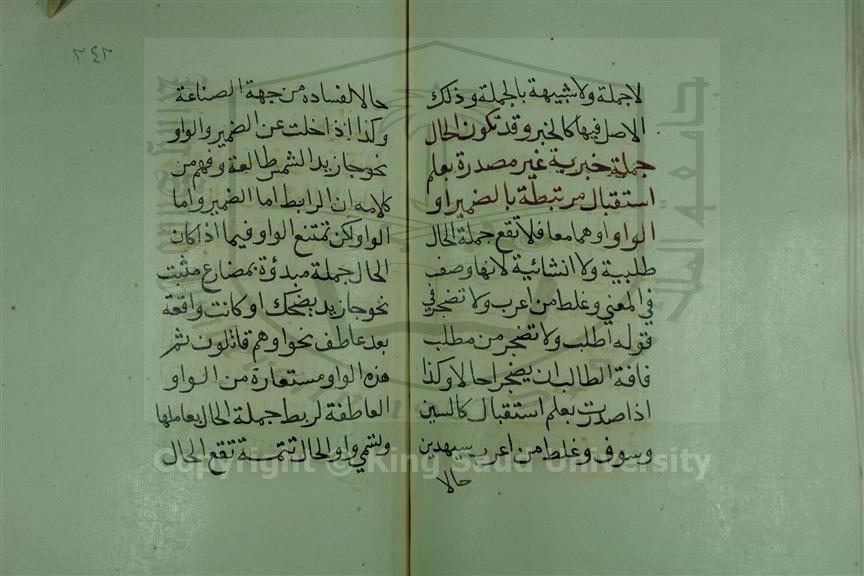 لا جملة ولا شبيهة بالجملة وذلك
الاصل فيها كالخبر وقد تكون الحال
جملة خبرية غير مصدرة بعلم
استقبال مرتبطة بالضمير او
الواو او هما معا فلا تقع جملة الحال
طلبية ولا انشائية لانها وصف
في المعني وغلط من اعرب ولا تضجر في
قوله اطلب ولا تضجر من مطلب
فافة الطالب ان يضجرا حالا وكذا
اذا صدرت بعلم استقبال كالسين
وسوف وغلط من اعرب سيهدين
حالا
٢٤٢
حالا لفساده من جهة الصناعة
وكذا اذا خلت عن الضمير والواو
نحو جا زيد الشمس طالعة وفهم من
كلامه ان الرابط اما الضمير واما
الواو لكن تمتنع الواو فيما اذا كان
الحال جملة مبدؤة بمضارع مثبت
نحو جا زيد يضحك او كانت واقعة
بعد عاطف نحو او هم قائلون ثم
هذه الواو مستعارة من الواو
العاطفة لربط جملة الحال بعاملها
وتسمي واو الحال تتمة تقع الحال
Copyright © King Saud University